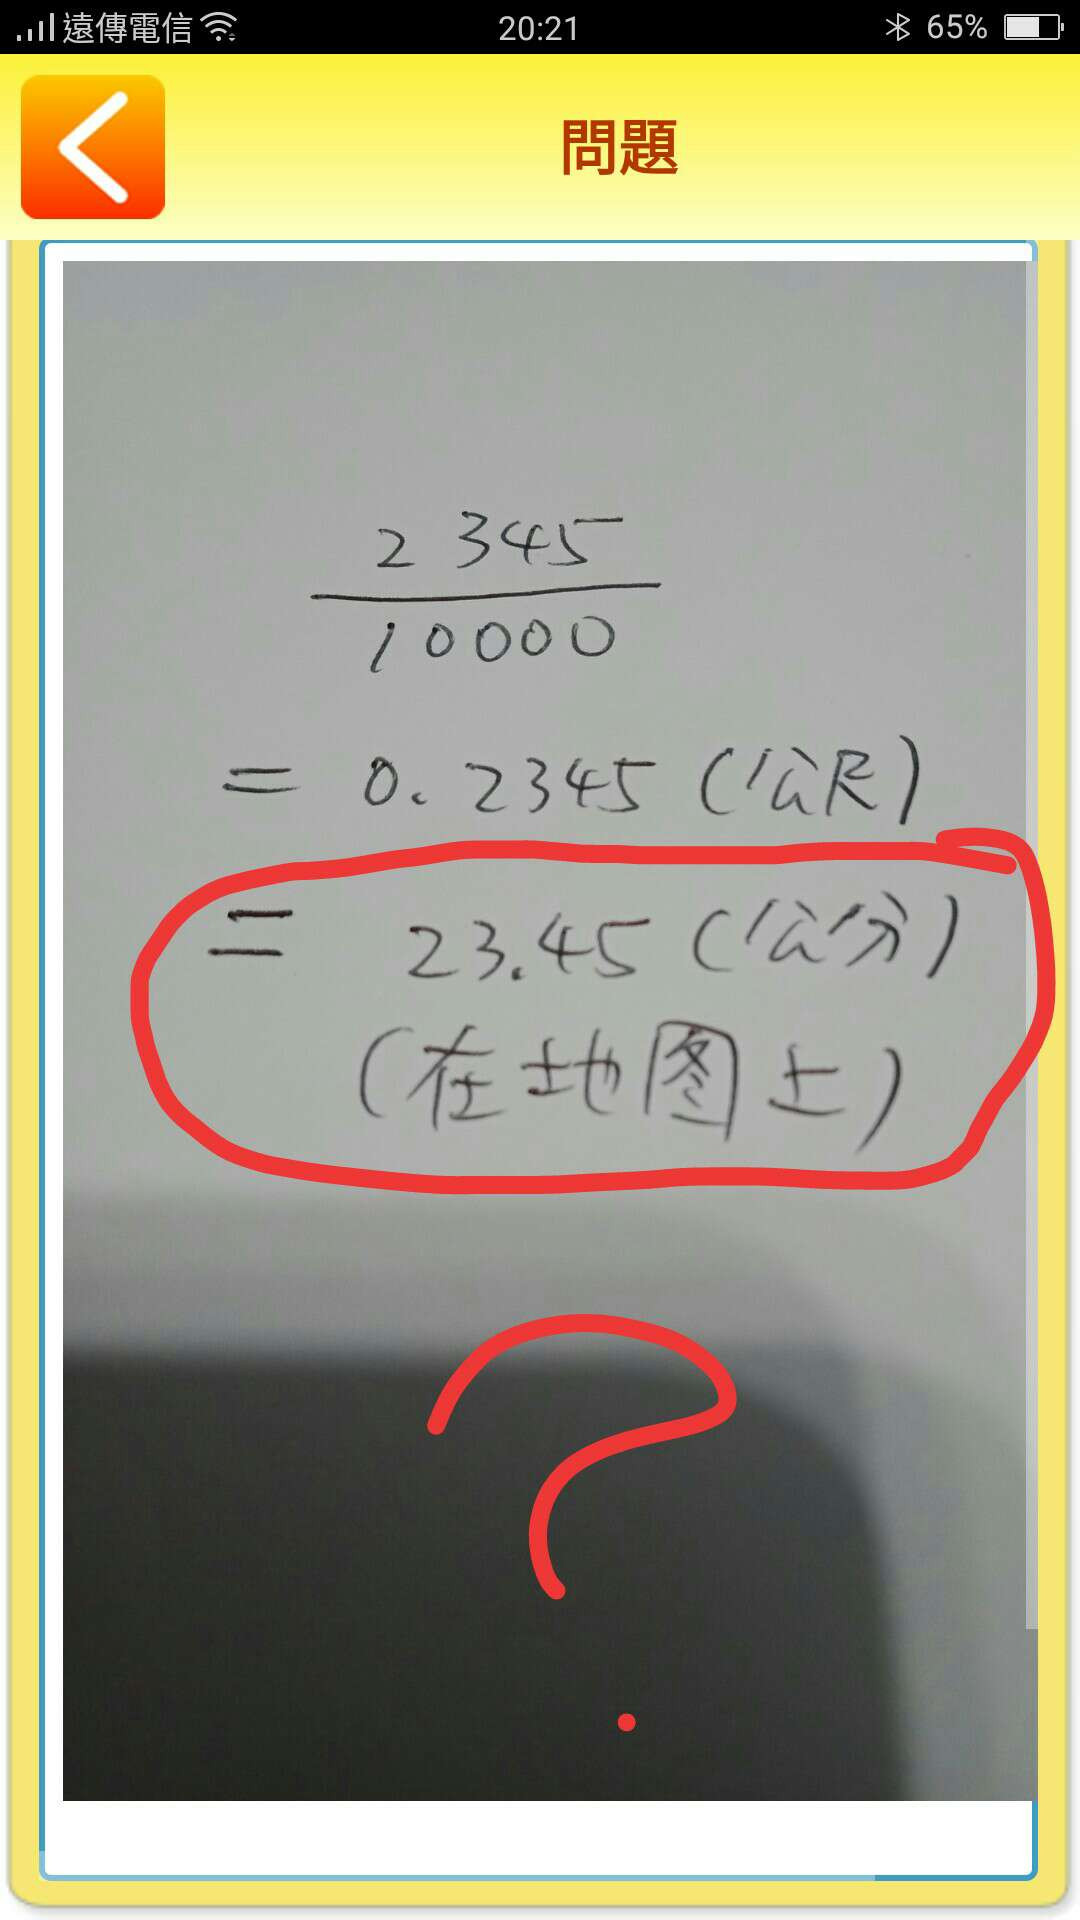 遠傳電信 20:21 65%
問題
2345
10000
= 0.2345 (公尺)
= 23.45 (公分)
(在地图上)
?